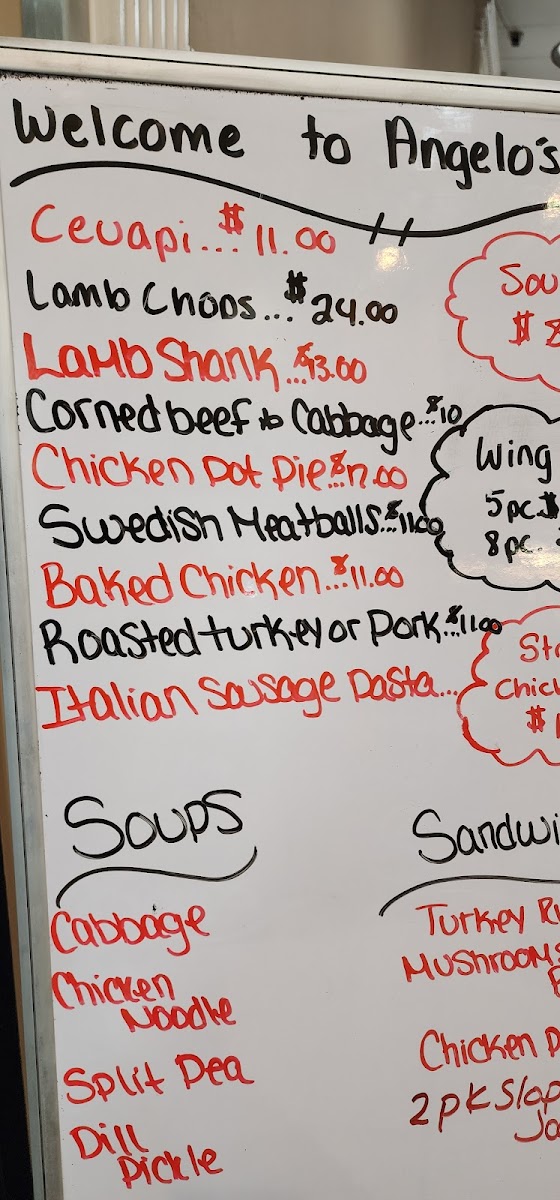 Welcome to Angelo's
Cevapi...$11.00
Lamb Chops...$24.00
Lamb Shank...$13.00
Corned beef to Cabbage...$10
Chicken Pot Pie...$
Swedish Meatballs...$11.00
Baked Chicken...$11.00
Roasted turkey or Pork...$11.00
Italian Sausage Pasta...
Sou
$
Wing
5pc.$
8pc.
Chick
$
Soups
Cabbage
Chicken
Noodle
Split Pea
Dill
Pickle
Sandwi
Turkey R
Mushrooms
Chicken P
2pk Slop
Jo